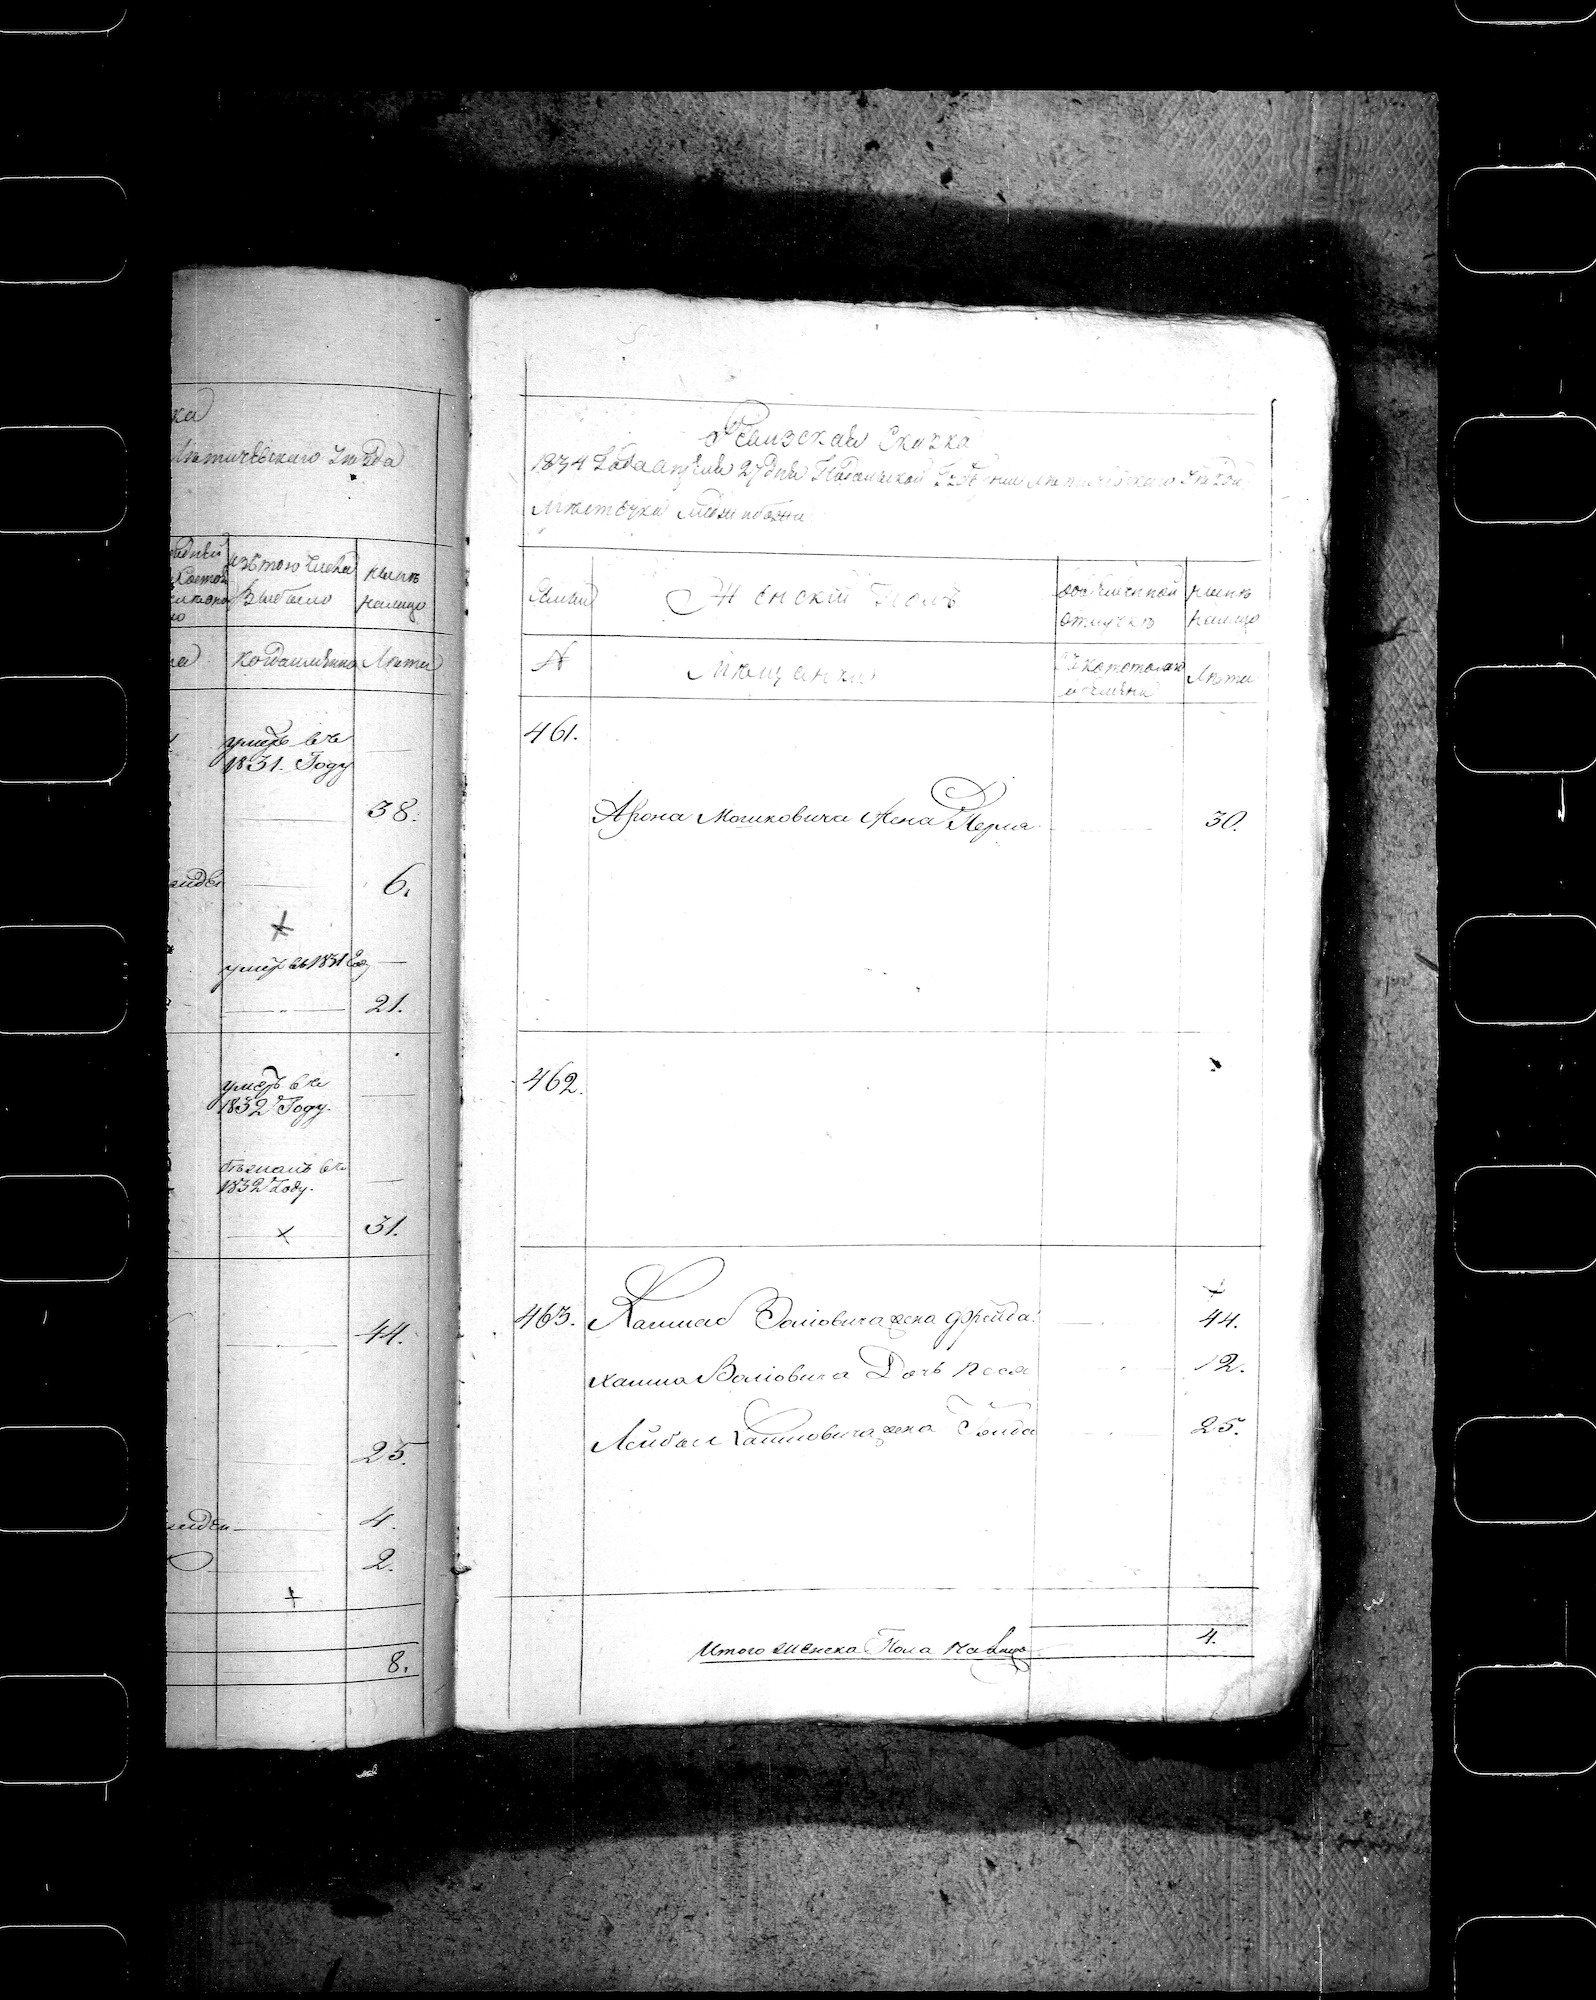 ка
Летичевскаго Уезда
изътого числа
Выбыло
ныне
налицо
когдаименно
Лета
умеръ въ
1831. Году
38.
6.
умеръ въ 1831 Году
21.
умеръ въ
1832 Году.
бежалъ въ
1832 Году.
31.
44.
25.
4.
2.
8.
Ревизская Сказка
1834 Года апреля 27 дня Подольской Губернии Летичевскаго Уезда
Местечка Меджибожа
Семьи
Женский Полъ
вовременной
отлучке
ныне
налицо
№
Мещанки
Лета
461.
Арона Мошковича Жена Перля
30.
462.
463.
Хаима Волковича жена Фрейда
44.
Хаима Волковича Дочь Песя
12.
Лейбы Хаимовича жена
25.
Итого женска Пола налицо
4.